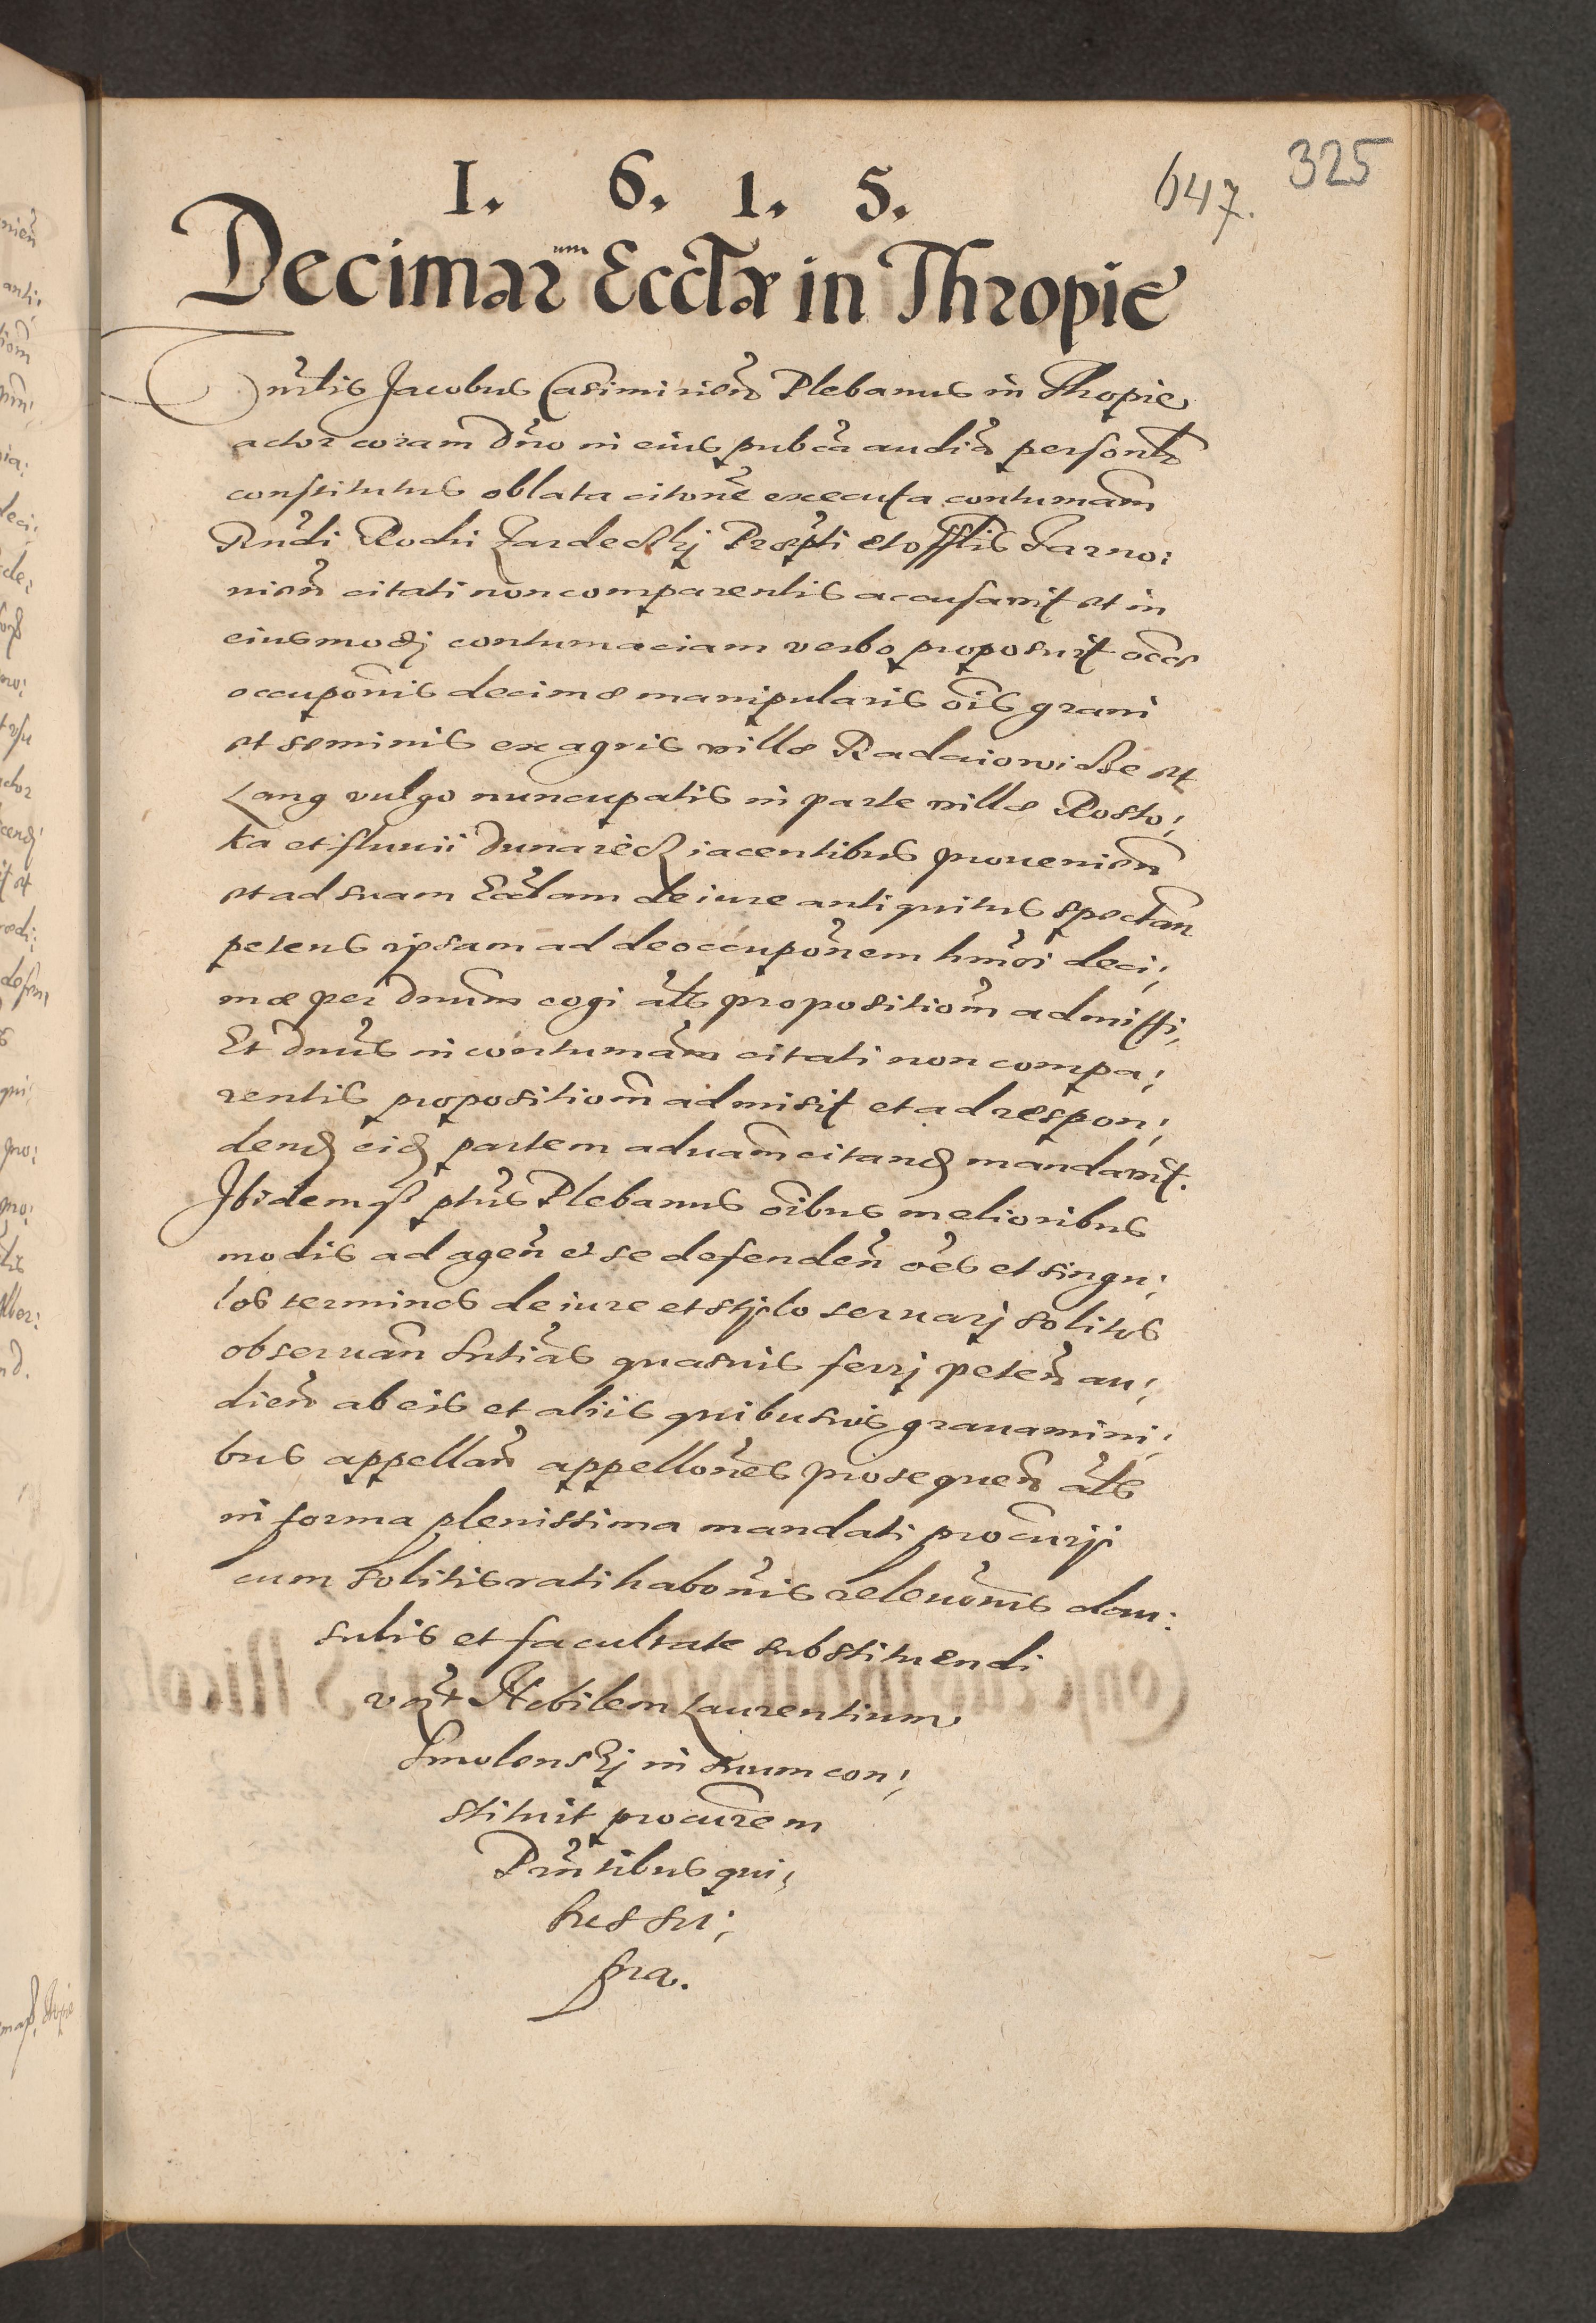 325
647.
1. 6. 1. 5.
Decimarum Eccłæ in Thropie
Dnus Jacobus Casimirien Plebanus in Thropie
actor coram Dno in eius pubca audia personlr
constitutus oblata citone executa contumam
Rndi Rochi Zardeckj Præpti et offlis Tarno:
nien citati non comparentis accusavit et in
eiusmodj contumaciam verbo proposuit occõe
occuponis decimæ manipularis ois grani
et seminis ex agris villæ Radaiowicze et
Lang vulgo nuncupatis in parte villæ Rosto:
ka et fluuii Dunaiecz iacentibus prouenien
et ad suam Eccłam de iure antiquitus spectan
petens ipsam ad deoccuponem hmoi deci:
mæ per Dnum cogi als propositiom admitti,
Et Dnus in contumam citati non compa:
rentis propositiom admisit et ad respon:
dend eid partem aduam citand mandavit.
Ibidemq ptus Plebanus oibus melioribus
modis ad agen et se defenden oes et singu:
los terminos de iure et stylo seruarj solitos
obseruan sntias quasuis ferrj peten au:
dien ab eis et aliis quibusuis grauamini:
bus appellan appellones prosequen als
in forma plenissima mandati procurij
cum solitis ratihabonis releuonis clau:
sulis et facultate substituendi
Nobilem Laurentium
Smolenskj in suum con:
stituit procurem
Pntibus qui:
bus su:
pra.